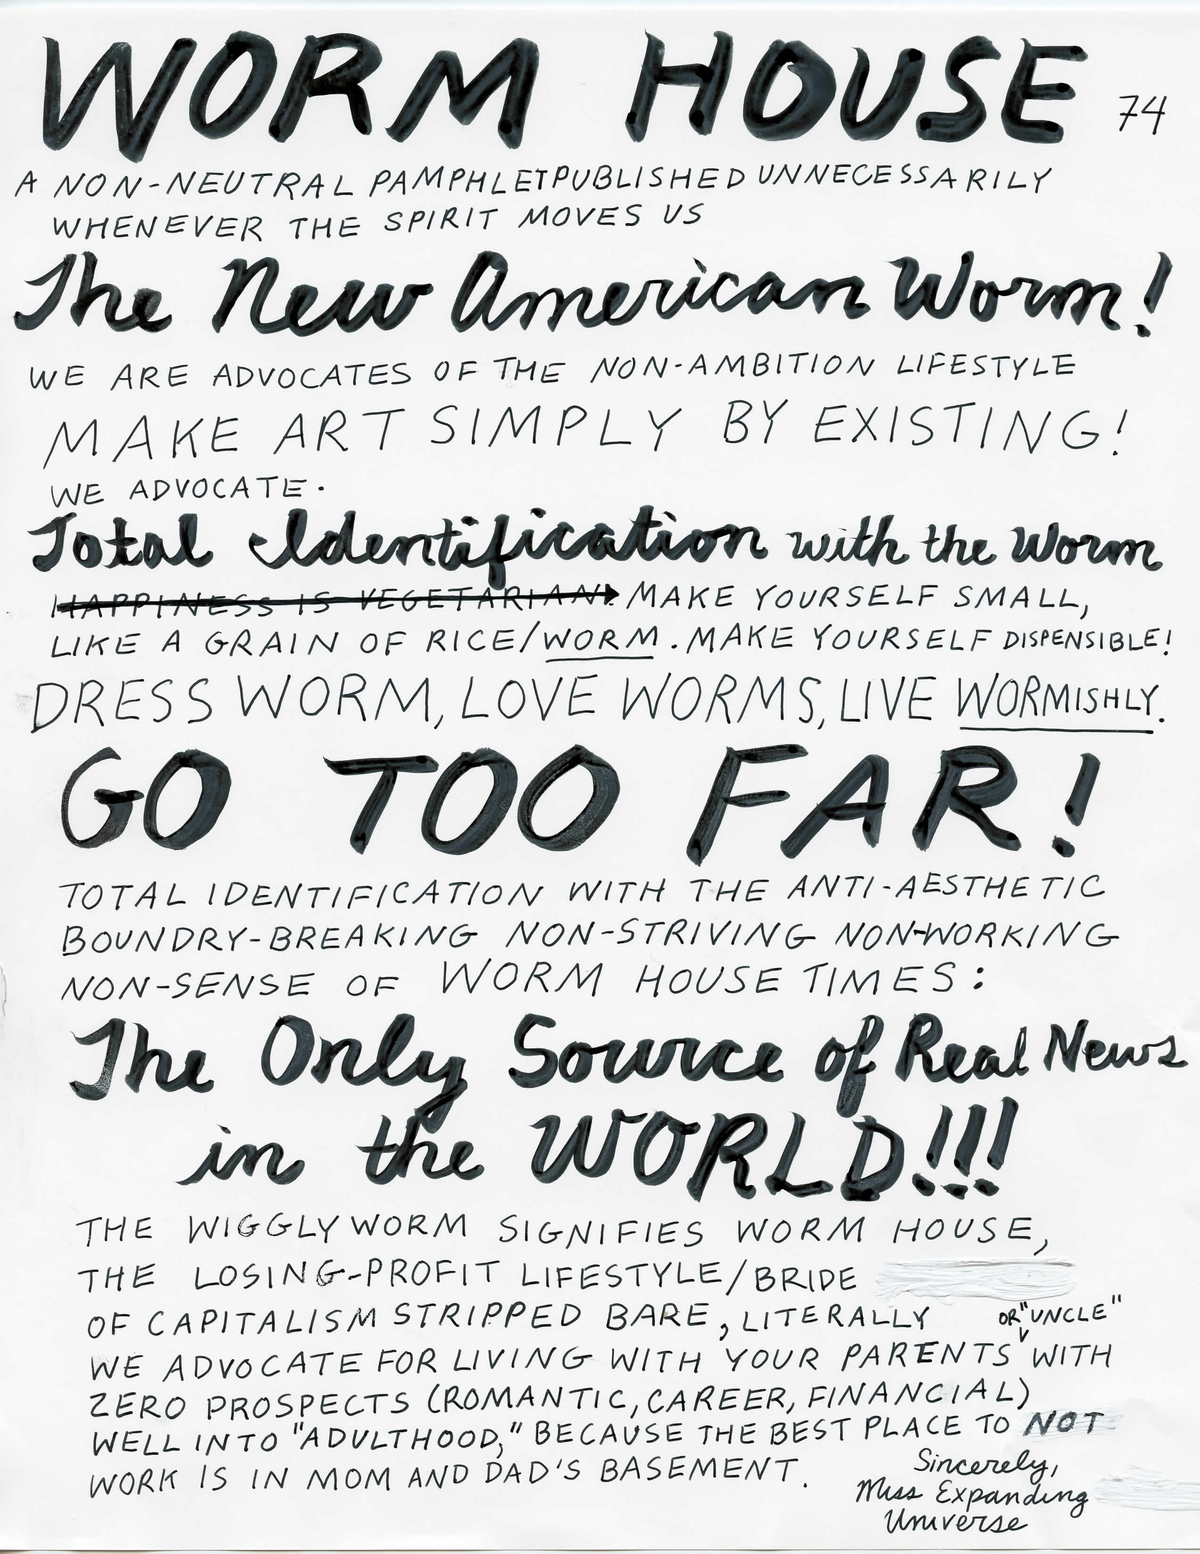 WORM HOUSE 74
A NON-NEUTRAL PAMPHLET PUBLISHED UNNECESSARILY
WHENEVER THE SPIRIT MOVES US
The New American Worm!
WE ARE ADVOCATES OF THE NON-AMBITION LIFESTYLE
MAKE ART SIMPLY BY EXISTING!
WE ADVOCATE.
Total Identification with the Worm
HAPPINESS IS VEGETARIAN! MAKE YOURSELF SMALL,
LIKE A GRAIN OF RICE/WORM. MAKE YOURSELF DISPENSIBLE!
DRESS WORM, LOVE WORMS, LIVE WORMISHLY.
GO TOO FAR!
TOTAL IDENTIFICATION WITH THE ANTI-AESTHETIC
BOUNDRY-BREAKING NON-STRIVING NON-WORKING
NON-SENSE OF WORM HOUSE TIMES:
The Only Source of Real News
in the WORLD!!!
THE WIGGLY WORM SIGNIFIES WORM HOUSE,
THE LOSING-PROFIT LIFESTYLE/BRIDE
OF CAPITALISM STRIPPED BARE, LITERALLY
OR "UNCLE"
WE ADVOCATE FOR LIVING WITH YOUR PARENTS WITH
ZERO PROSPECTS (ROMANTIC, CAREER, FINANCIAL)
WELL INTO "ADULTHOOD," BECAUSE THE BEST PLACE TO NOT
WORK IS IN MOM AND DAD'S BASEMENT.
Sincerely,
Miss Expanding
Universe